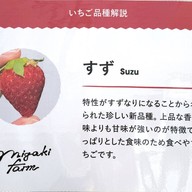 いちご品種解説
すず Suzu
特性がすずなりになることから
られた珍しい新品種。上品な香
味よりも甘味が強いのが特徴で
っぱりとした食味のため食べやす
ちごです。
Migaki
Farm